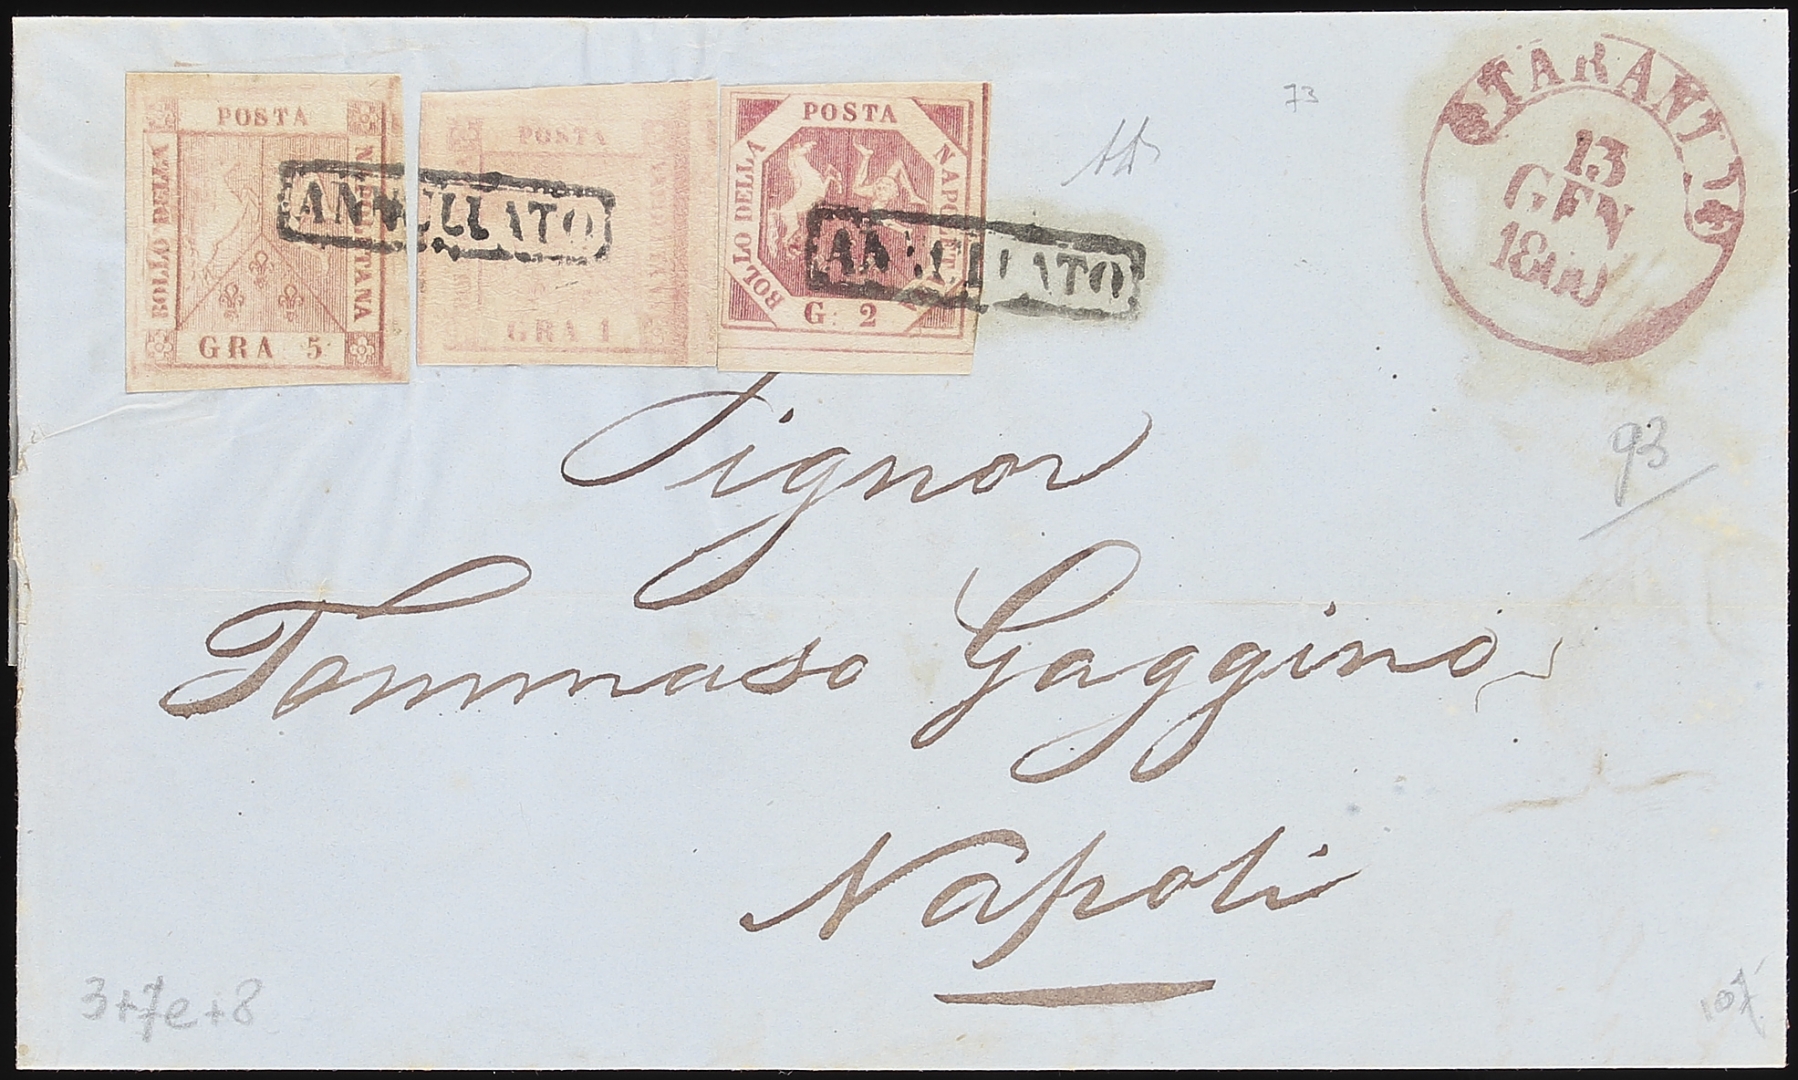 POSTA
BOLLO DELLA
NAPOLETANA
GRA 5
POSTA
GRA 1
POSTA
BOLLO DELLA
G. 2
ANNULLATO
ANNULLATO
TARANTO
13
GEN
1860
73
93
Signor
Tommaso Gaggino
Napoli
3+7e+8
107